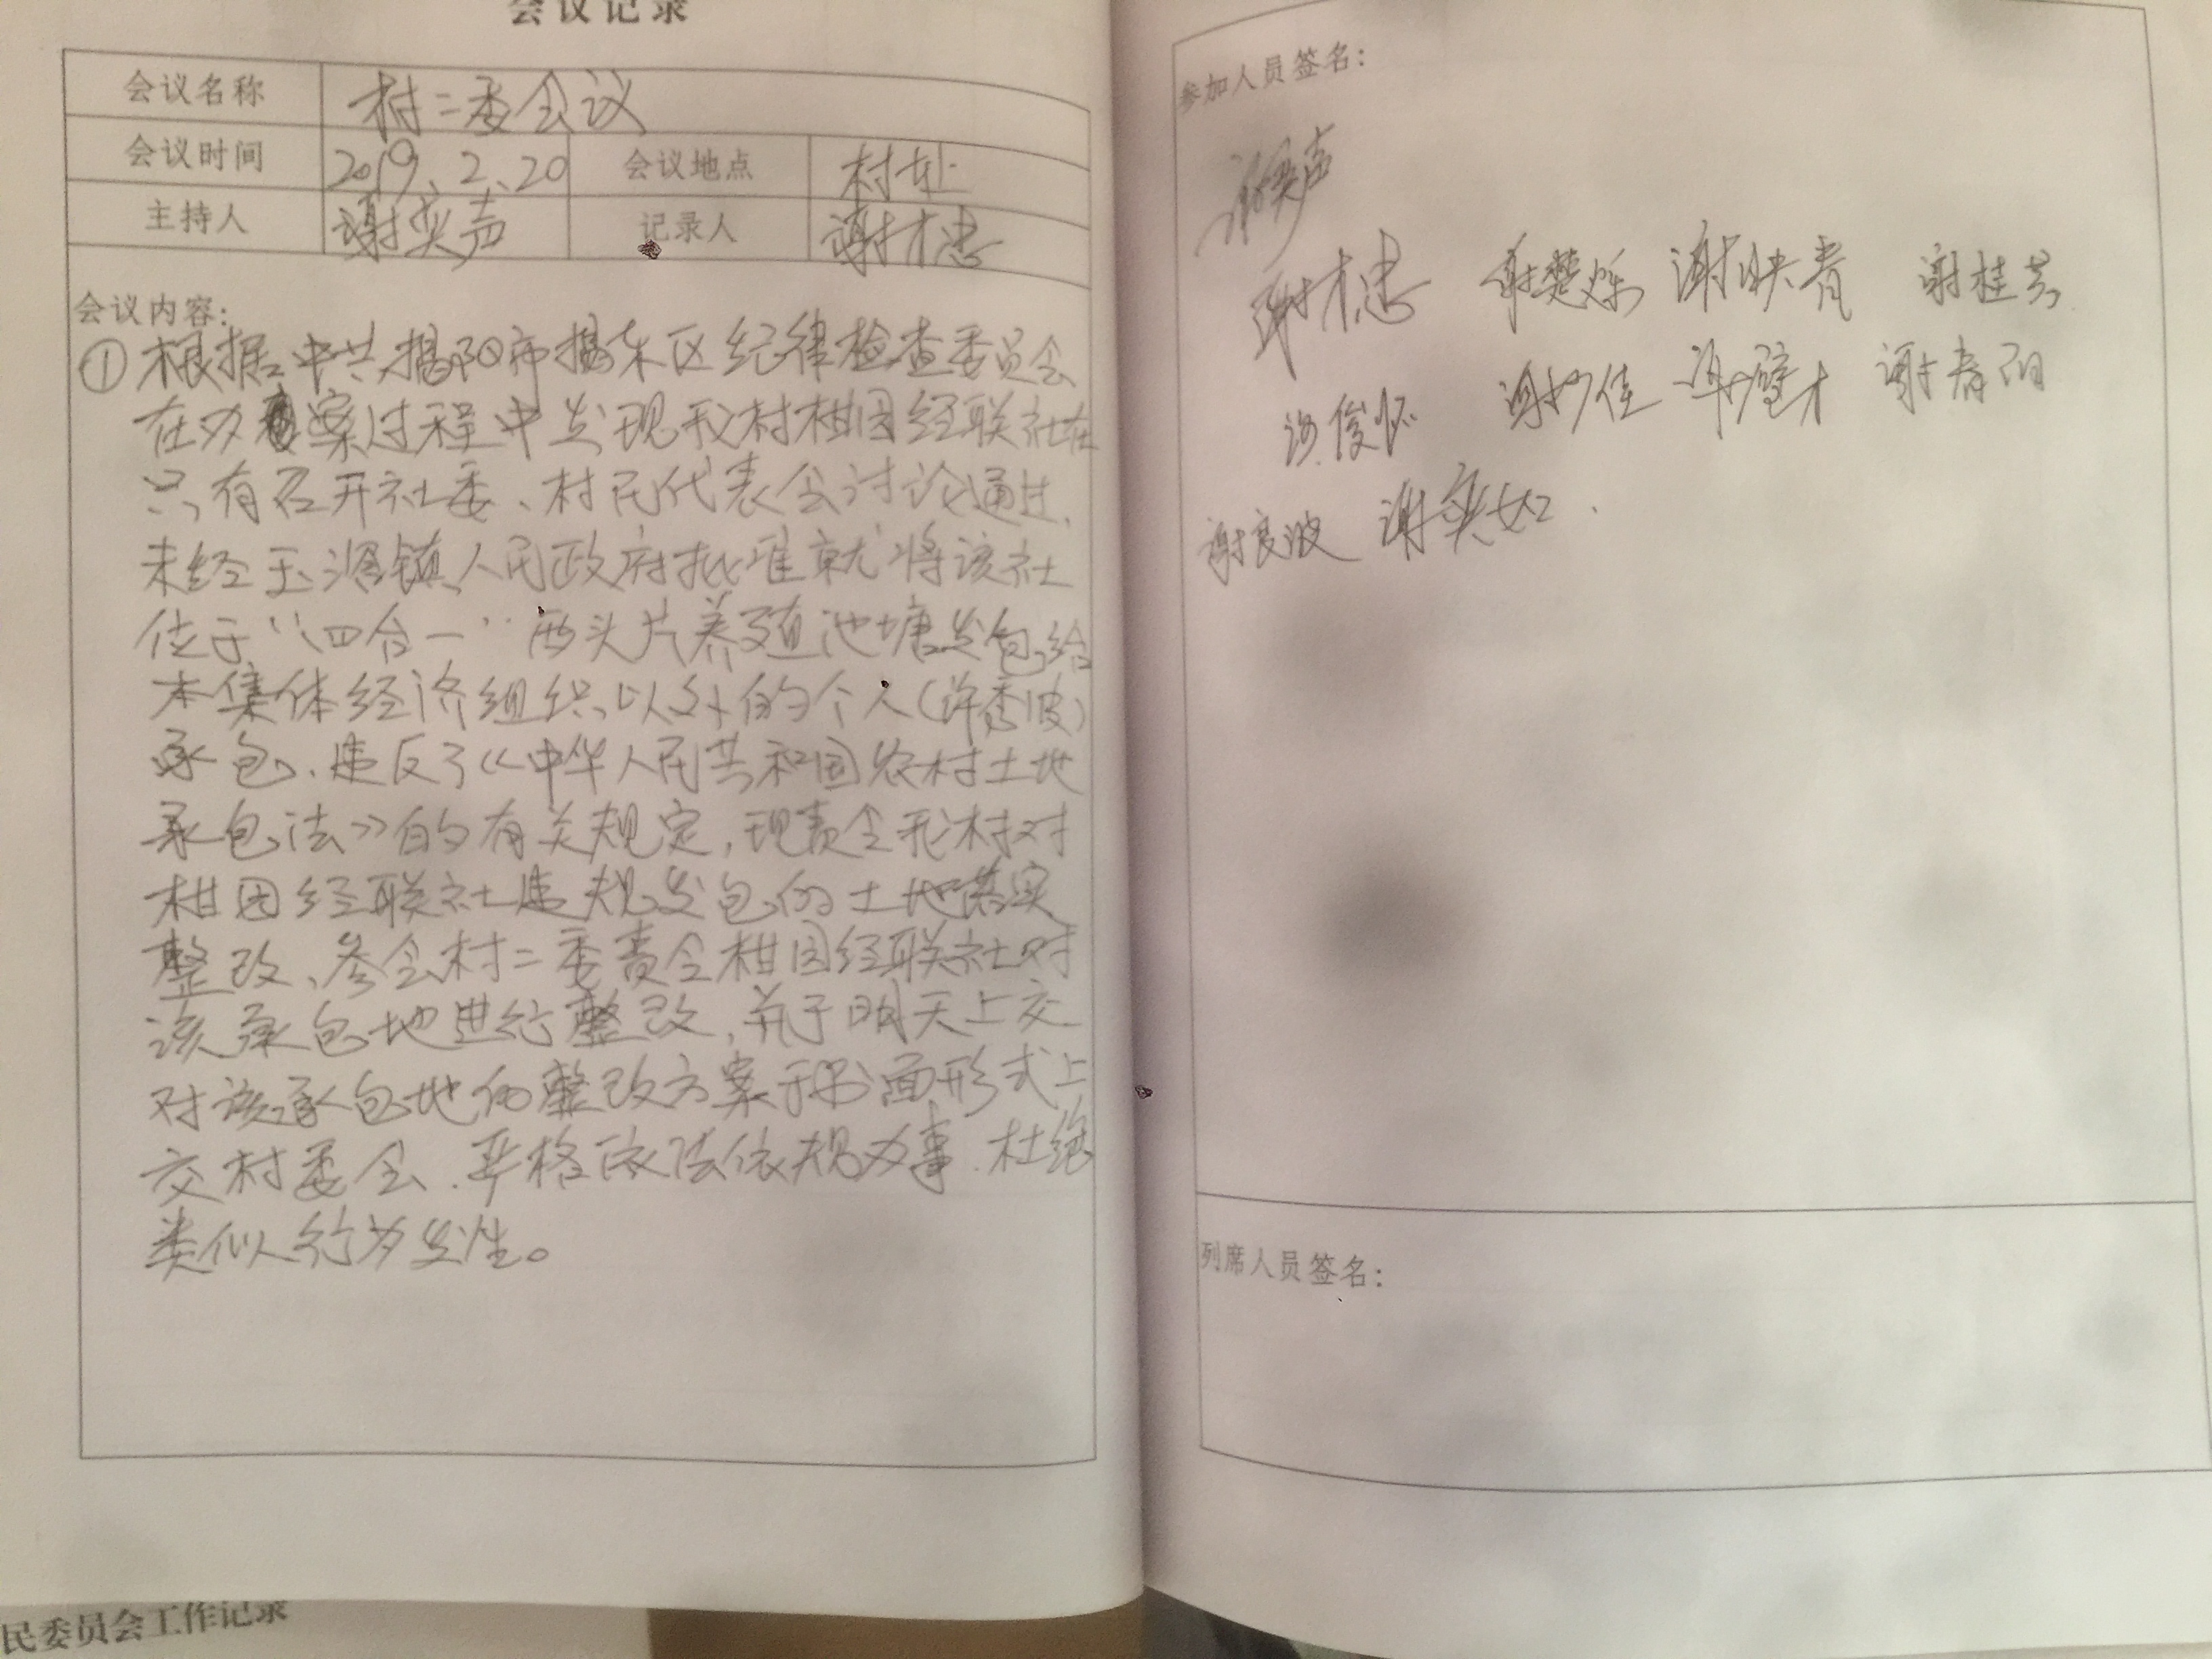 会议记录
会议名称 村二委会议
会议时间 2019.2.20 会议地点 村址
主持人 谢奕声 记录人 谢才忠
会议内容:
①根据中共揭阳市揭东区纪律检查委员会
在办案过程中发现我村柑园经联社在
只有召开社委、村民代表会讨论通过,
未经玉滘镇人民政府批准就将该社
位于“四合一”西头片养殖池塘发包给
本集体经济组织以外的个人(许秀波)
承包、违反了《中华人民共和国农村土地
承包法》的有关规定,现责令我村对
柑园经联社违规发包的土地落实
整改、参会村二委责令柑园经联社对
该承包地进行整改,并于明天上交
对该承包地的整改方案于书面形式上
交村委会、严格依法依规办事.杜绝
类似行为发生。
参加人员签名:
谢奕声
谢才忠 谢楚烁 谢映青 谢桂芸
俊怀 谢妙佳 才 谢春
谢良波 谢奕如.
列席人员签名:
民委员会工作记录